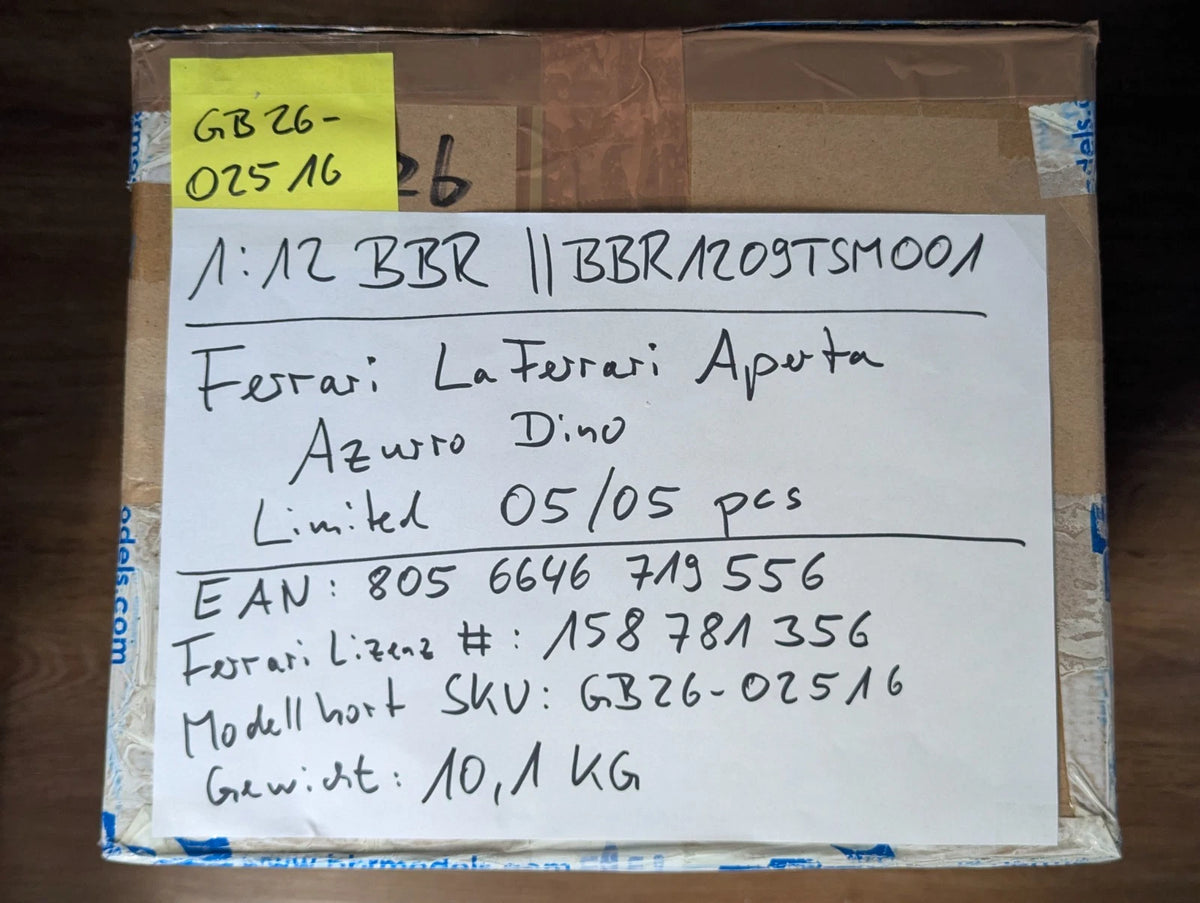 GB26-
02516
26
1:12 BBR || BBR1209TSM001
Ferrari LaFerrari Aperta
Azurro Dino
Limited 05/05 pcs
EAN: 805 6646 719 556
Ferrari Lizenz #: 158 781 356
Modellhort SKU: GB26-02516
Gewicht: 10,1 KG
odels.com
dels.
www.bbrmodels.com